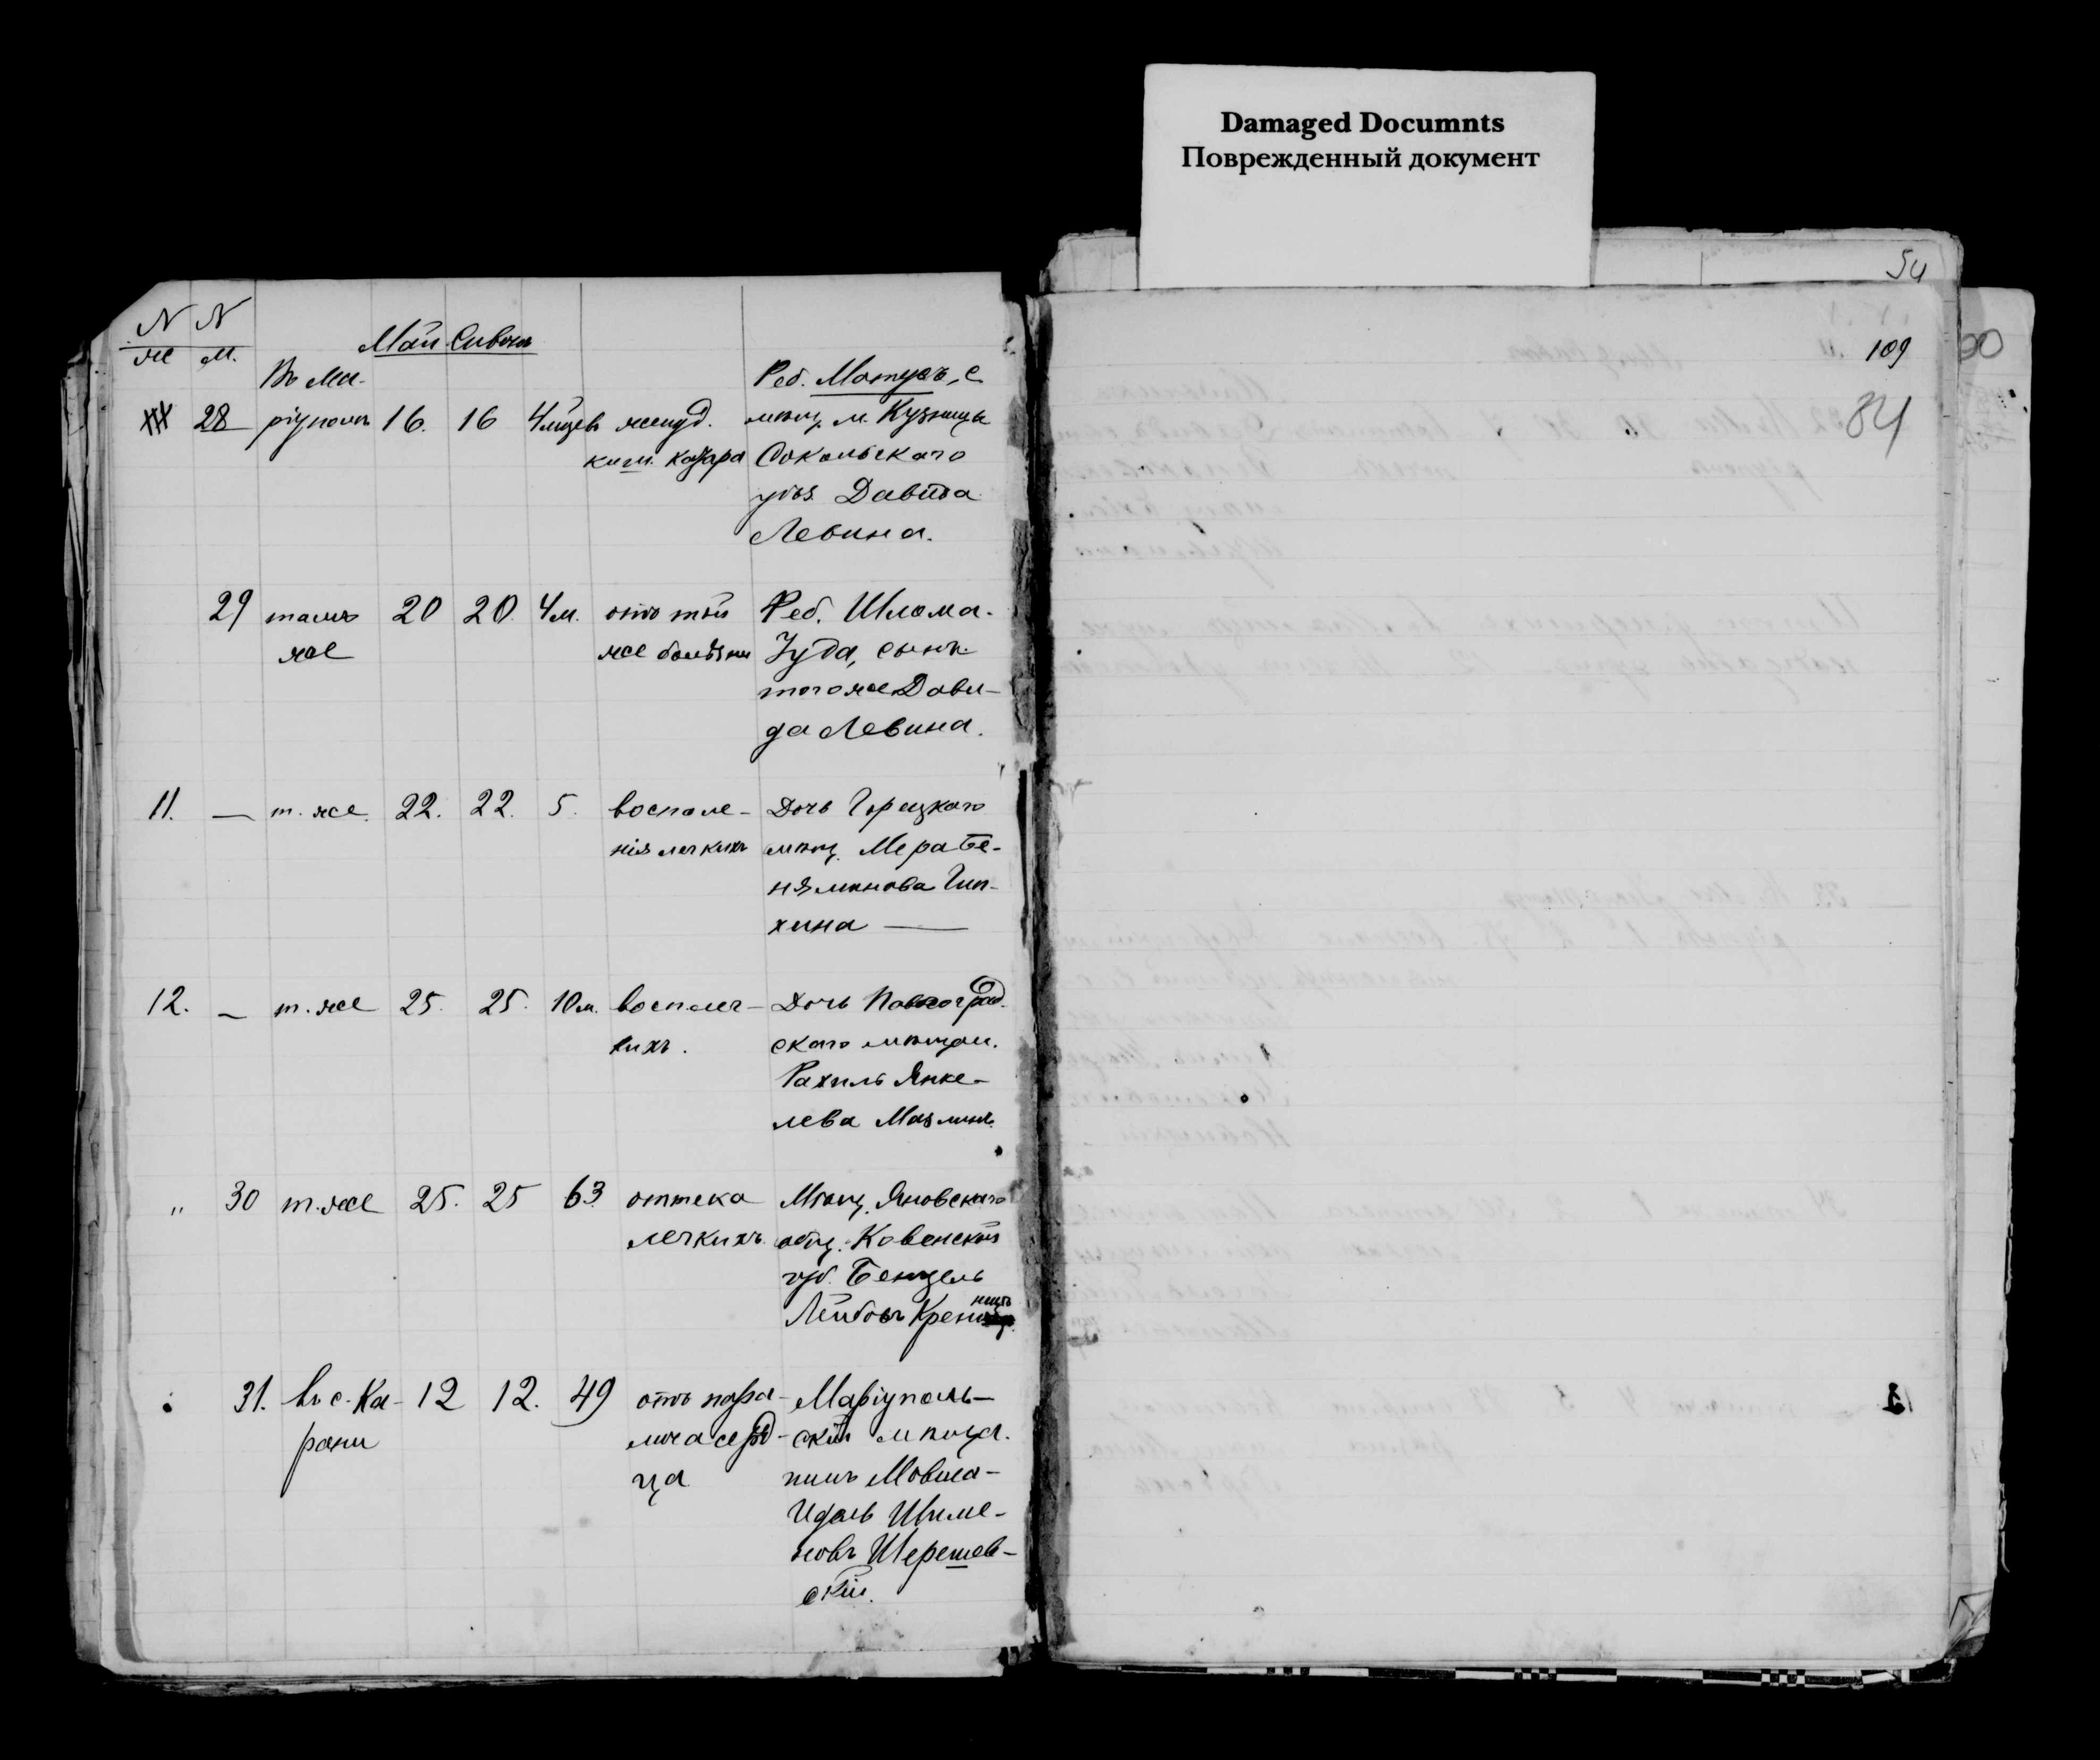 Damaged Documnts
Поврежденный документ
54
109
84
N N
же м.
Май Сивонъ
Въ Ма-
28 ріуполѣ 16. 16 4 мѣсяц. желуд.
киш. катара
Реб. Матусъ, с.
мѣщ. м. Кузницы
Сокольскаго
уѣз. Давида
Левина.
29 тамъ 20 20. 4 м. отъ той
же же болѣзни
Реб. Шлома-
Іуда, сынъ
того же Дави-
да Левина.
11. — т. же 22. 22. 5. воспале-
нія легкихъ
Дочь Горецкаго
мѣщ. Мера Бе-
няминова
хина —
12. — т. же 25. 25. 10 м. воспал. лег-
кихъ.
Дочь Павлоград.
скаго мѣщан.
Рахиль Янке-
лева
" 30 т. же 25. 25 63 оттека
легкихъ
Мѣщ. Яновскаго
общ. Ковенской
губ. Бенцель
Лейбовъ
31. въ с. Ка- 12 12. 49 отъ пара-
рани лича серд-
ца
Маріуполь-
скій мѣща-
нинъ Мовша-
Идель Шиме-
новъ Шерешев-
скій.